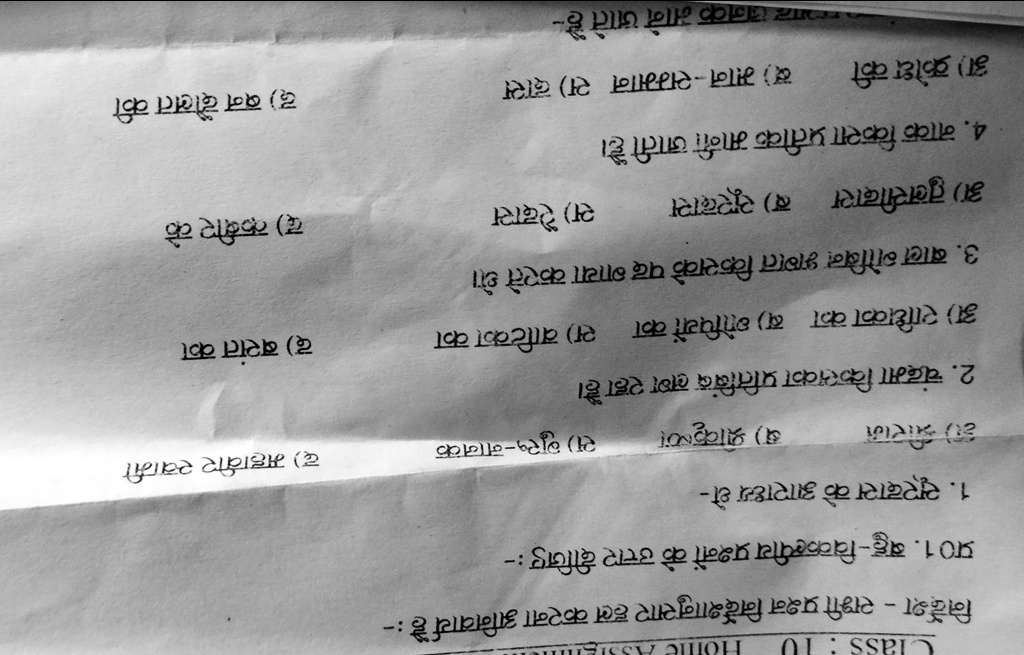 Class : 10 Home Assignment
निर्देश - सभी प्रश्न निर्देशानुसार हल करना अनिवार्य है :-
प्र01. बहु-विकल्पीय प्रश्नों के उत्तर दीजिए :-
1. सूरदास के आराध्य थे-
अ) श्रीराम ब) श्रीकृष्ण स) गुरू-नानक द) महावीर स्वामी
2. चंद्रमा किसका प्रतिबिंब लग रहा है।
अ) राधिका का ब) गोपियों का स) वाटिका का द) बसंत का
3. बाल गोबिन भगत किसके पद गाया करते थे।
अ) तुलसीदास ब) सूरदास स) रैदास द) कबीर के
4. नाक किसा प्रतीक मानी जाती है।
अ) क्रोध की ब) मान-सम्मान स) दास द) बन दौलत की
जनक माने जाते है-